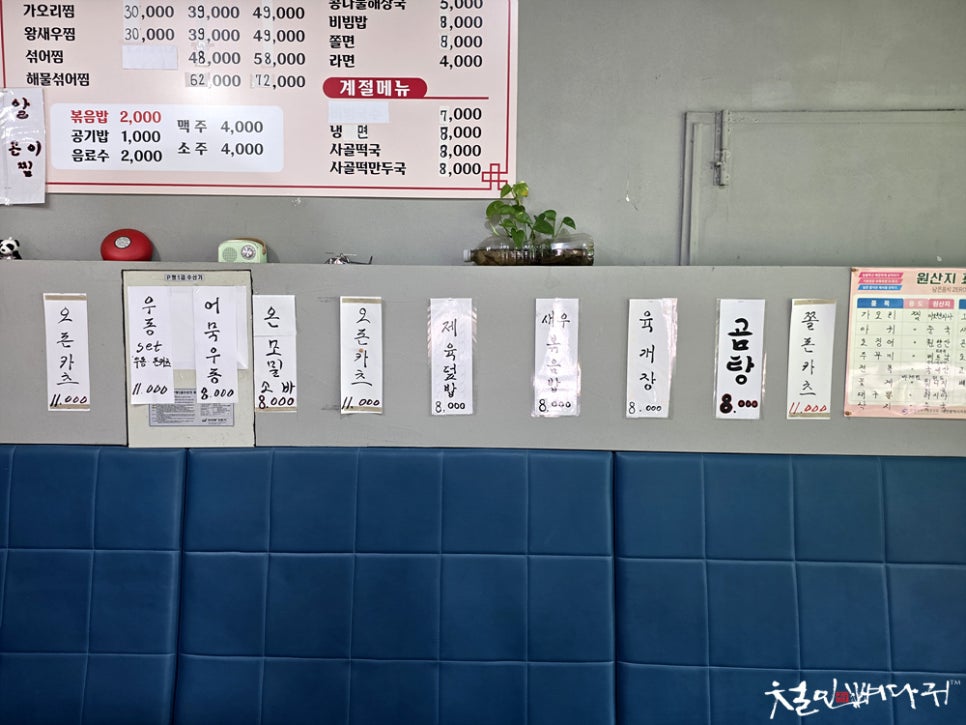 가오리찜 30,000 39,000 49,000
왕새우찜 30,000 39,000 49,000
섞어찜 48,000 58,000
해물섞어찜 62,000 72,000
볶음밥 2,000
공기밥 1,000
음료수 2,000
맥 주 4,000
소 주 4,000
콩나물해장국 5,000
비빔밥 8,000
쫄면 8,000
라면 4,000
계절메뉴
7,000
냉 면 8,000
사골떡국 8,000
사골떡만두국 8,000
알
곤이
찜
오픈카츠
11.000
P형1급 수신기
우동
set
우동 돈까스
11.000
어묵우동
8.000
온모밀
소바
8.000
오픈카츠
11.000
제육덮밥
8.000
새우볶음밥
8.000
육개장
8.000
곰탕
8.000
쫄픈카츠
11.000
원산지 표
품 목 용 도 원산지
가오리 찜
아 귀 〃 중국
오징어 〃 원양산
쭈꾸미 〃 베트남
철민뼈다귀™